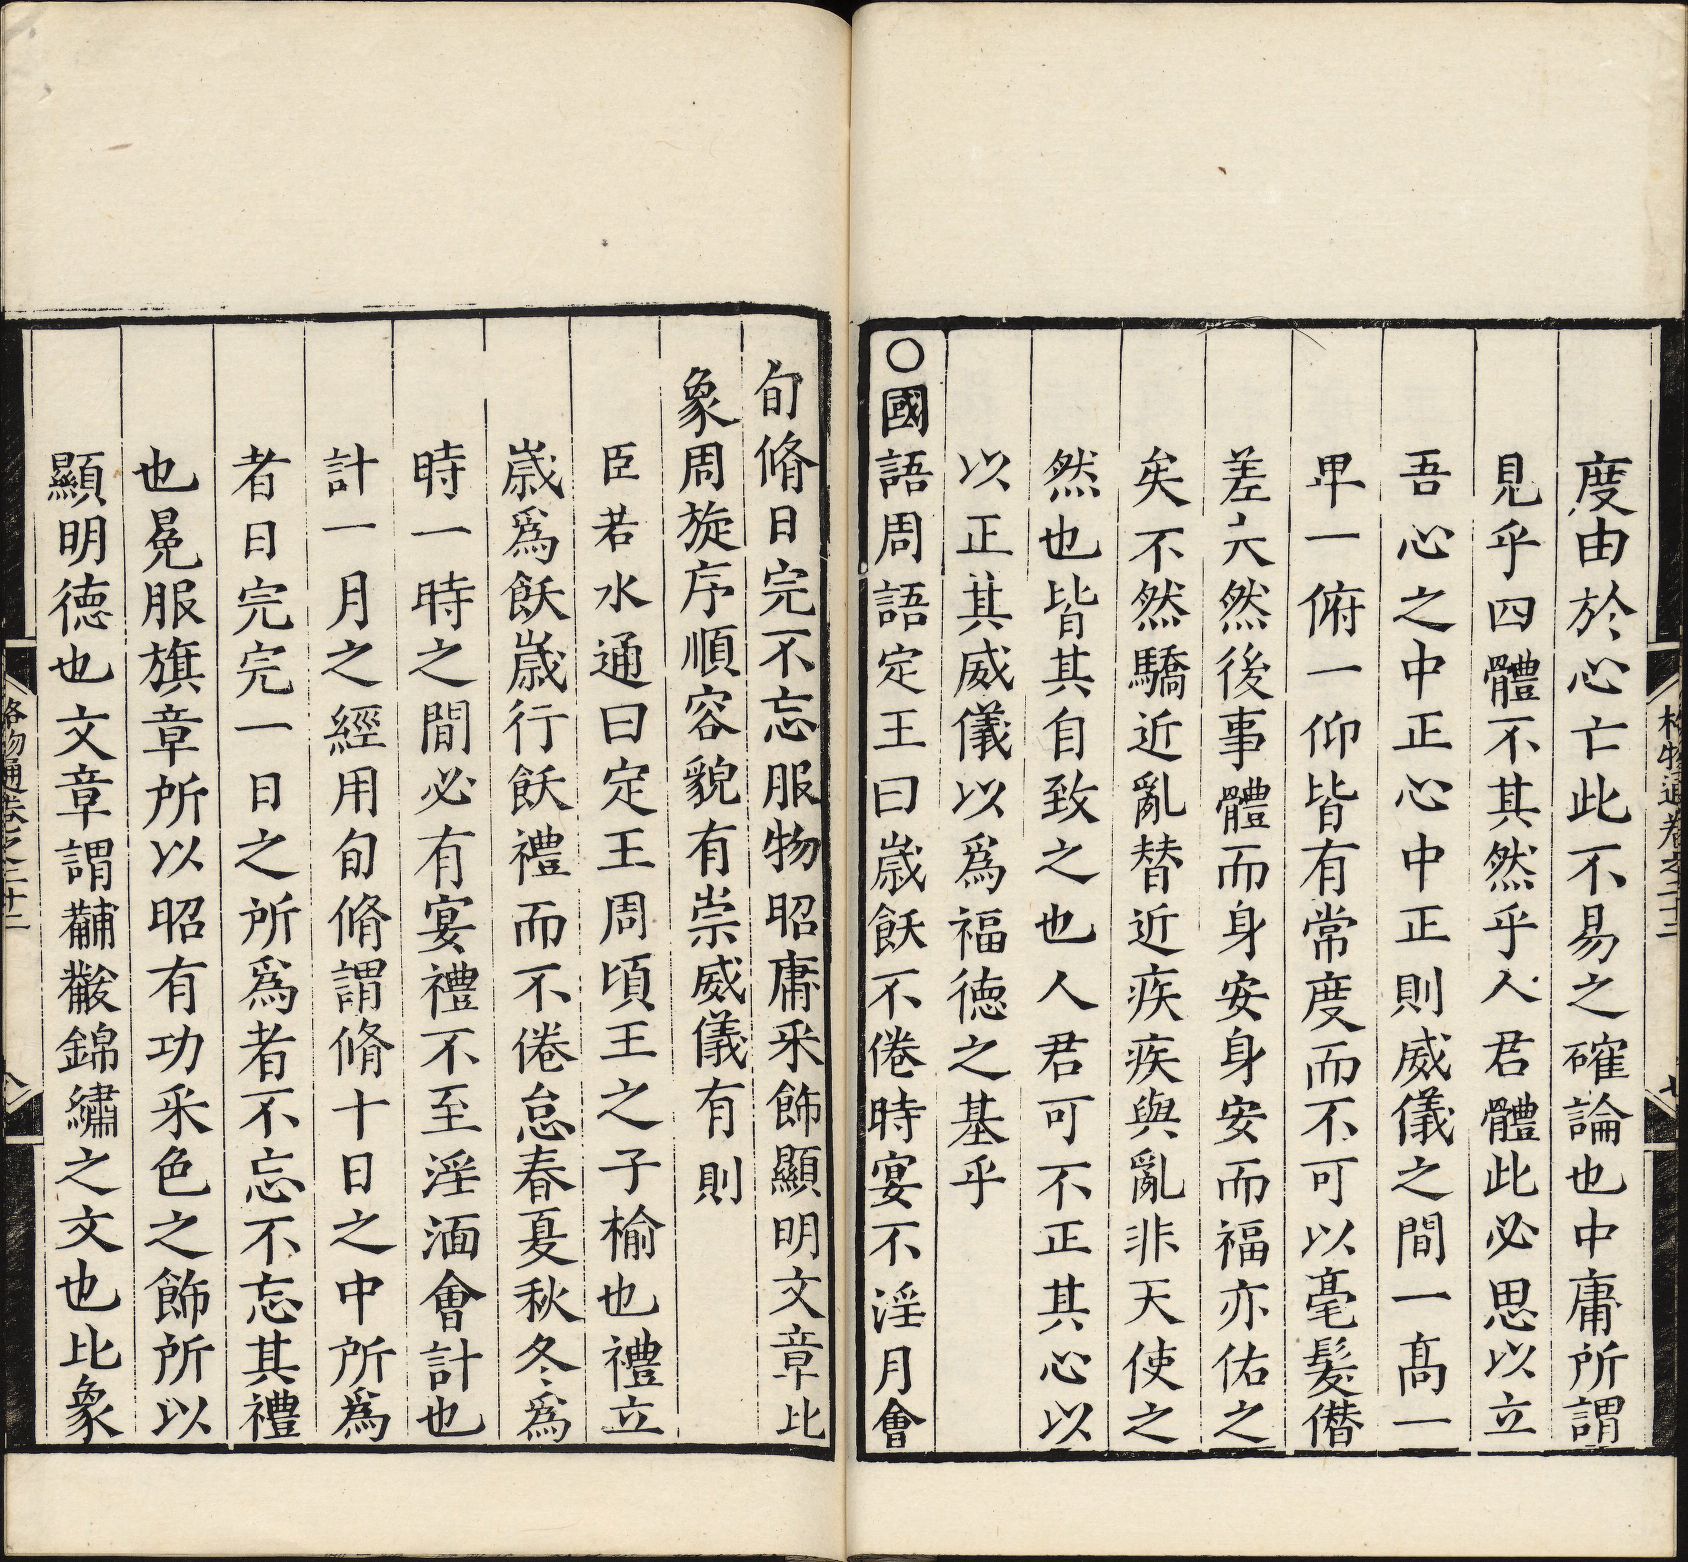 度由於心亡此不易之確論也中庸所謂
見乎四體不其然乎人君體此必思以立
吾心之中正心中正則威儀之間一高一
卑一俯一仰皆有常度而不可以毫髮僣
差六然後事體而身安身安而福亦佑之
矣不然驕近亂替近疾疾與亂非天使之
然也皆其自致之也人君可不正其心以
以正其威儀以為福德之基乎
○國語周語定王曰歲飫不倦時宴不淫月會
旬脩日完不忘服物昭庸采飾顯明文章比
象周旋序順容貌有崇威儀有則
臣若水通曰定王周頃王之子榆也禮立
歲爲飫歲行飫禮而不倦怠春夏秋冬爲
時一時之間必有宴禮不至淫湎會計也
計一月之經用旬脩謂脩十日之中所爲
者日完完一日之所爲者不忘不忘其禮
也冕服旗章所以昭有功采色之飾所以
顯明德也文章謂黼黻錦繡之文也比象
格物通卷之二十二